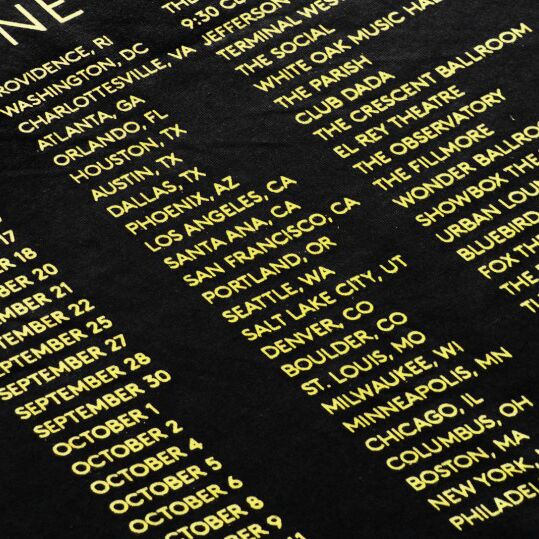 NE
17
ER 18
BER 20
EMBER 21
TEMBER 22
SEPTEMBER 25
SEPTEMBER 27
SEPTEMBER 28
SEPTEMBER 30
OCTOBER 1
OCTOBER 2
OCTOBER 4
OCTOBER 5
OCTOBER 6
OCTOBER 8
OCTOBER 9
ROVIDENCE, RI
WASHINGTON, DC
CHARLOTTESVILLE, VA
ATLANTA, GA
ORLANDO, FL
HOUSTON, TX
AUSTIN, TX
DALLAS, TX
PHOENIX, AZ
LOS ANGELES, CA
SANTA ANA, CA
SAN FRANCISCO, CA
PORTLAND, OR
SEATTLE, WA
SALT LAKE CITY, UT
DENVER, CO
BOULDER, CO
ST. LOUIS, MO
MILWAUKEE, WI
MINNEAPOLIS, MN
CHICAGO, IL
COLUMBUS, OH
BOSTON, MA
NEW YORK,
PHILADEL
THE
9:30 CL
JEFFERSON
TERMINAL WES
THE SOCIAL
WHITE OAK MUSIC HAL
THE PARISH
CLUB DADA
THE CRESCENT BALLROOM
EL REY THEATRE
THE OBSERVATORY
THE FILLMORE
WONDER BALLRO
SHOWBOX THE
URBAN LOUN
BLUEBIRD
FOX TH
THE